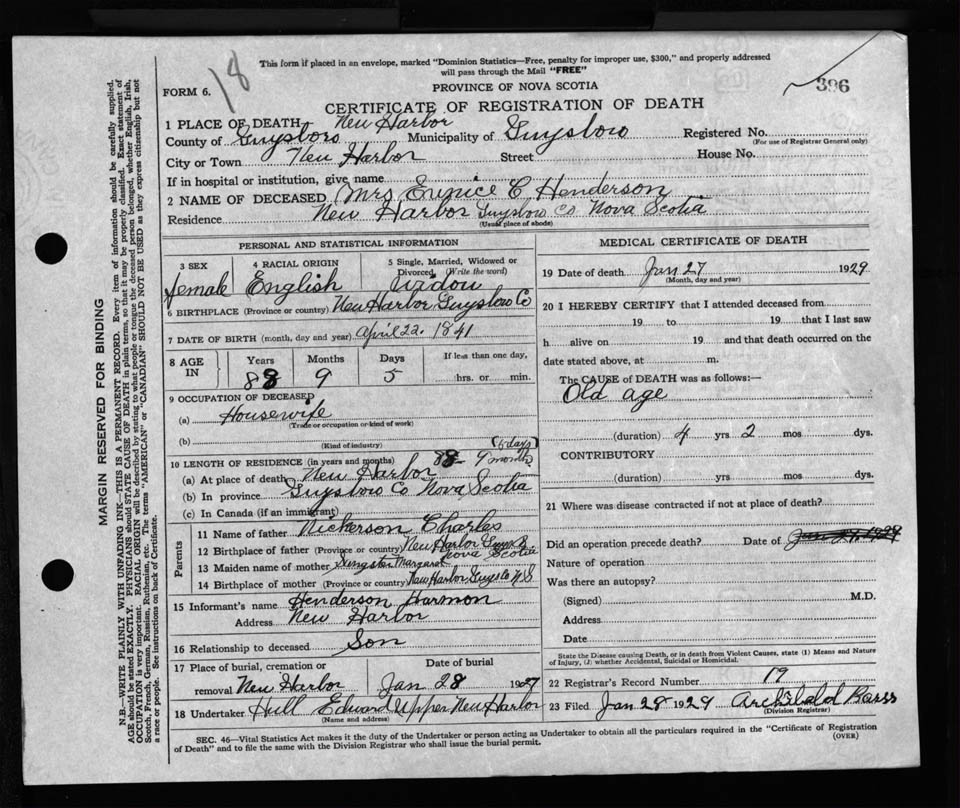 18
This form if placed in an envelope, marked "Dominion Statistics—Free, penalty for improper use, $300," and properly addressed
will pass through the Mail "FREE"
396
FORM 6.
PROVINCE OF NOVA SCOTIA
CERTIFICATE OF REGISTRATION OF DEATH
1 PLACE OF DEATH New Harbor
County of Guysboro Municipality of Guysboro Registered No.
(For use of Registrar General only)
City or Town New Harbor Street House No.
If in hospital or institution, give name
2 NAME OF DECEASED Mrs Eunice C Henderson
Residence New Harbor Guysboro Co Nova Scotia
(Usual place of abode)
PERSONAL AND STATISTICAL INFORMATION
3 SEX 4 RACIAL ORIGIN 5 Single, Married, Widowed or
Divorced, (Write the word)
female English widow
6 BIRTHPLACE (Province or country) New Harbor Guysboro Co
7 DATE OF BIRTH (month, day and year) April 22. 1841
8 AGE IN Years Months Days If less than one day,
88 9 5 hrs. or min.
9 OCCUPATION OF DECEASED
(a) Housewife
(Trade or occupation or kind of work)
(b)
(Kind of industry)
10 LENGTH OF RESIDENCE (in years and months) 88 9 months (6 days)
(a) At place of death New Harbor
(b) In province Guysboro Co Nova Scotia
(c) In Canada (if an immigrant)
Parents
11 Name of father Nickerson Charles
12 Birthplace of father (Province or country) New Harbor Nova Scotia
13 Maiden name of mother Margaret
14 Birthplace of mother (Province or country) New Harbor Guys Co N S
15 Informant's name Henderson Harmon
Address New Harbor
16 Relationship to deceased Son
17 Place of burial, cremation or Date of burial
removal New Harbor Jan 28 19
18 Undertaker Hull Edward Upper New Harbor
(Name and address)
MEDICAL CERTIFICATE OF DEATH
19 Date of death Jan 27 1929
(Month, day and year)
20 I HEREBY CERTIFY that I attended deceased from
19 to 19 that I last saw
h alive on 19 and that death occurred on the
date stated above, at m.
The CAUSE of DEATH was as follows:—
Old age
(duration) 4 yrs 2 mos dys.
CONTRIBUTORY
(duration) yrs mos dys.
21 Where was disease contracted if not at place of death?
Did an operation precede death? Date of
Nature of operation
Was there an autopsy?
(Signed) M.D.
Address
Date
State the Disease causing Death, or in death from Violent Causes, state (1) Means and Nature
of Injury, (2) whether Accidental, Suicidal or Homicidal.
22 Registrar's Record Number 19
23 Filed Jan 28 1929 Archibald Barss
(Division Registrar)
SEC. 46—Vital Statistics Act makes it the duty of the Undertaker or person acting as Undertaker to obtain all the particulars required in the "Certificate of Registration
of Death" and to file the same with the Division Registrar who shall issue the burial permit.
(OVER)
MARGIN RESERVED FOR BINDING
N.B.—WRITE PLAINLY WITH UNFADING INK—THIS IS A PERMANENT RECORD. Every item of information should be carefully supplied.
AGE should be stated EXACTLY. PHYSICIANS should STATE CAUSE OF DEATH in plain terms, so that it may be properly classified. Exact statement of
OCCUPATION is very important. RACIAL ORIGIN will be described by stating to what people or tongue the deceased person belonged, whether English, Irish,
Scotch, French, German, Russian, Ruthenian, etc. The terms "AMERICAN" or "CANADIAN" SHOULD NOT BE USED as they express citizenship but not
a race or people. See instructions on back of Certificate.